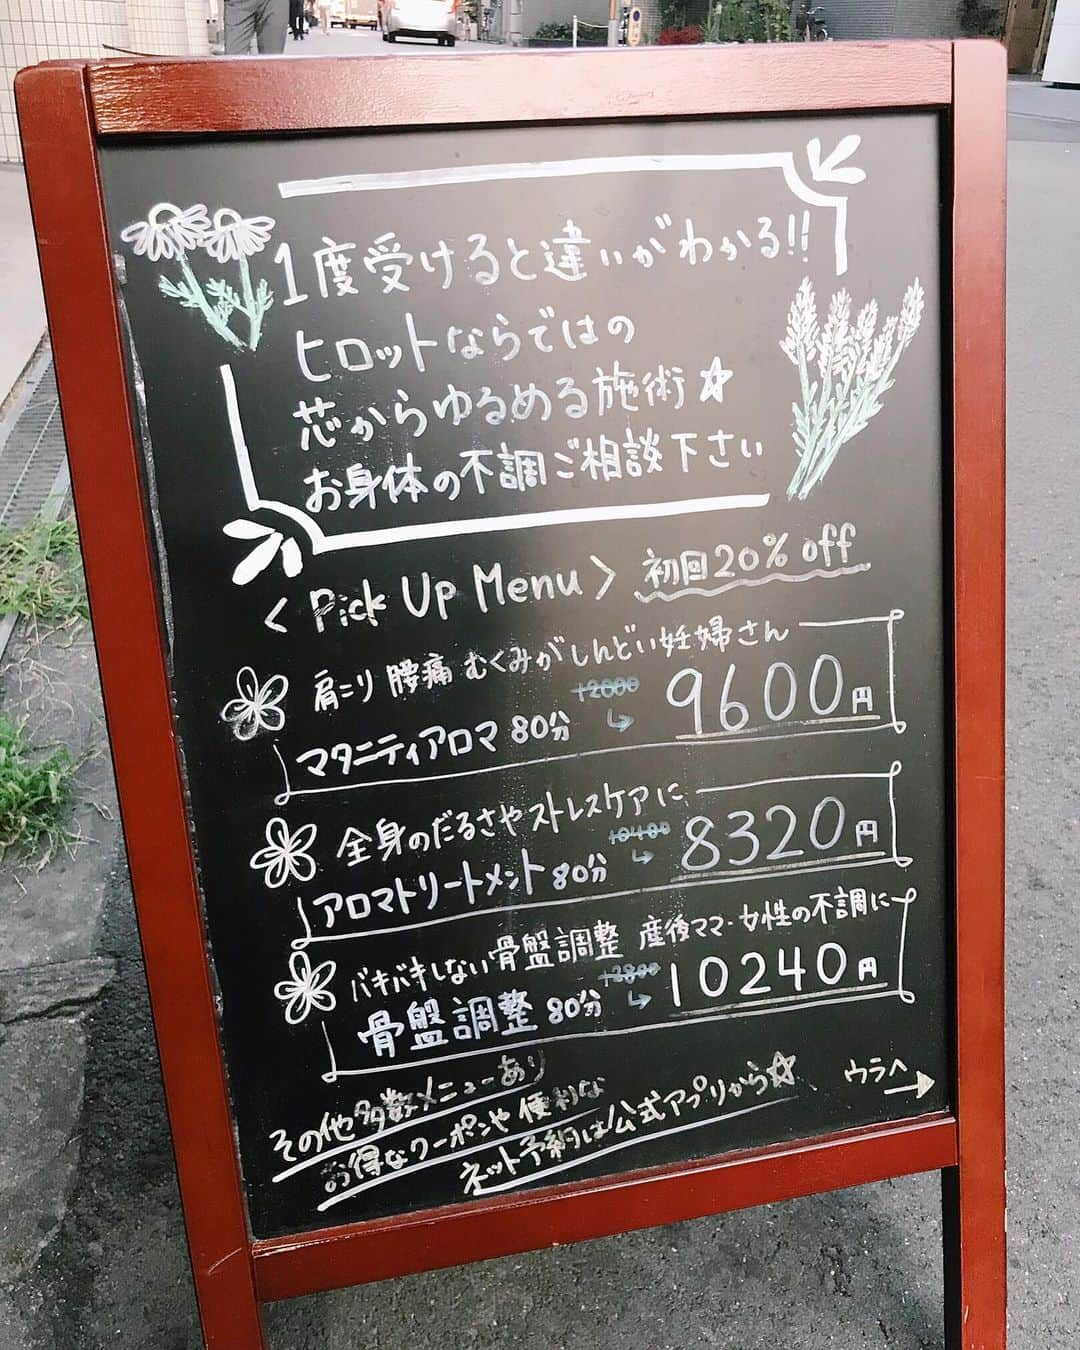 1度受けると違いがわかる!!
ヒロットならではの
芯からゆるめる施術☆
お身体の不調ご相談下さい
< Pick Up Menu > 初回20% off
肩こり 腰痛 むくみがしんどい妊婦さん
マタニティアロマ 80分 12000 ↳ 9600円
全身のだるさやストレスケアに
アロマトリートメント 80分 10400 ↳ 8320円
バキバキしない骨盤調整 産後ママ・女性の不調に
骨盤調整 80分 12800 ↳ 10240円
その他多数メニューあり
お得なクーポンや便利な
ネット予約は公式アプリから☆
ウラへ→